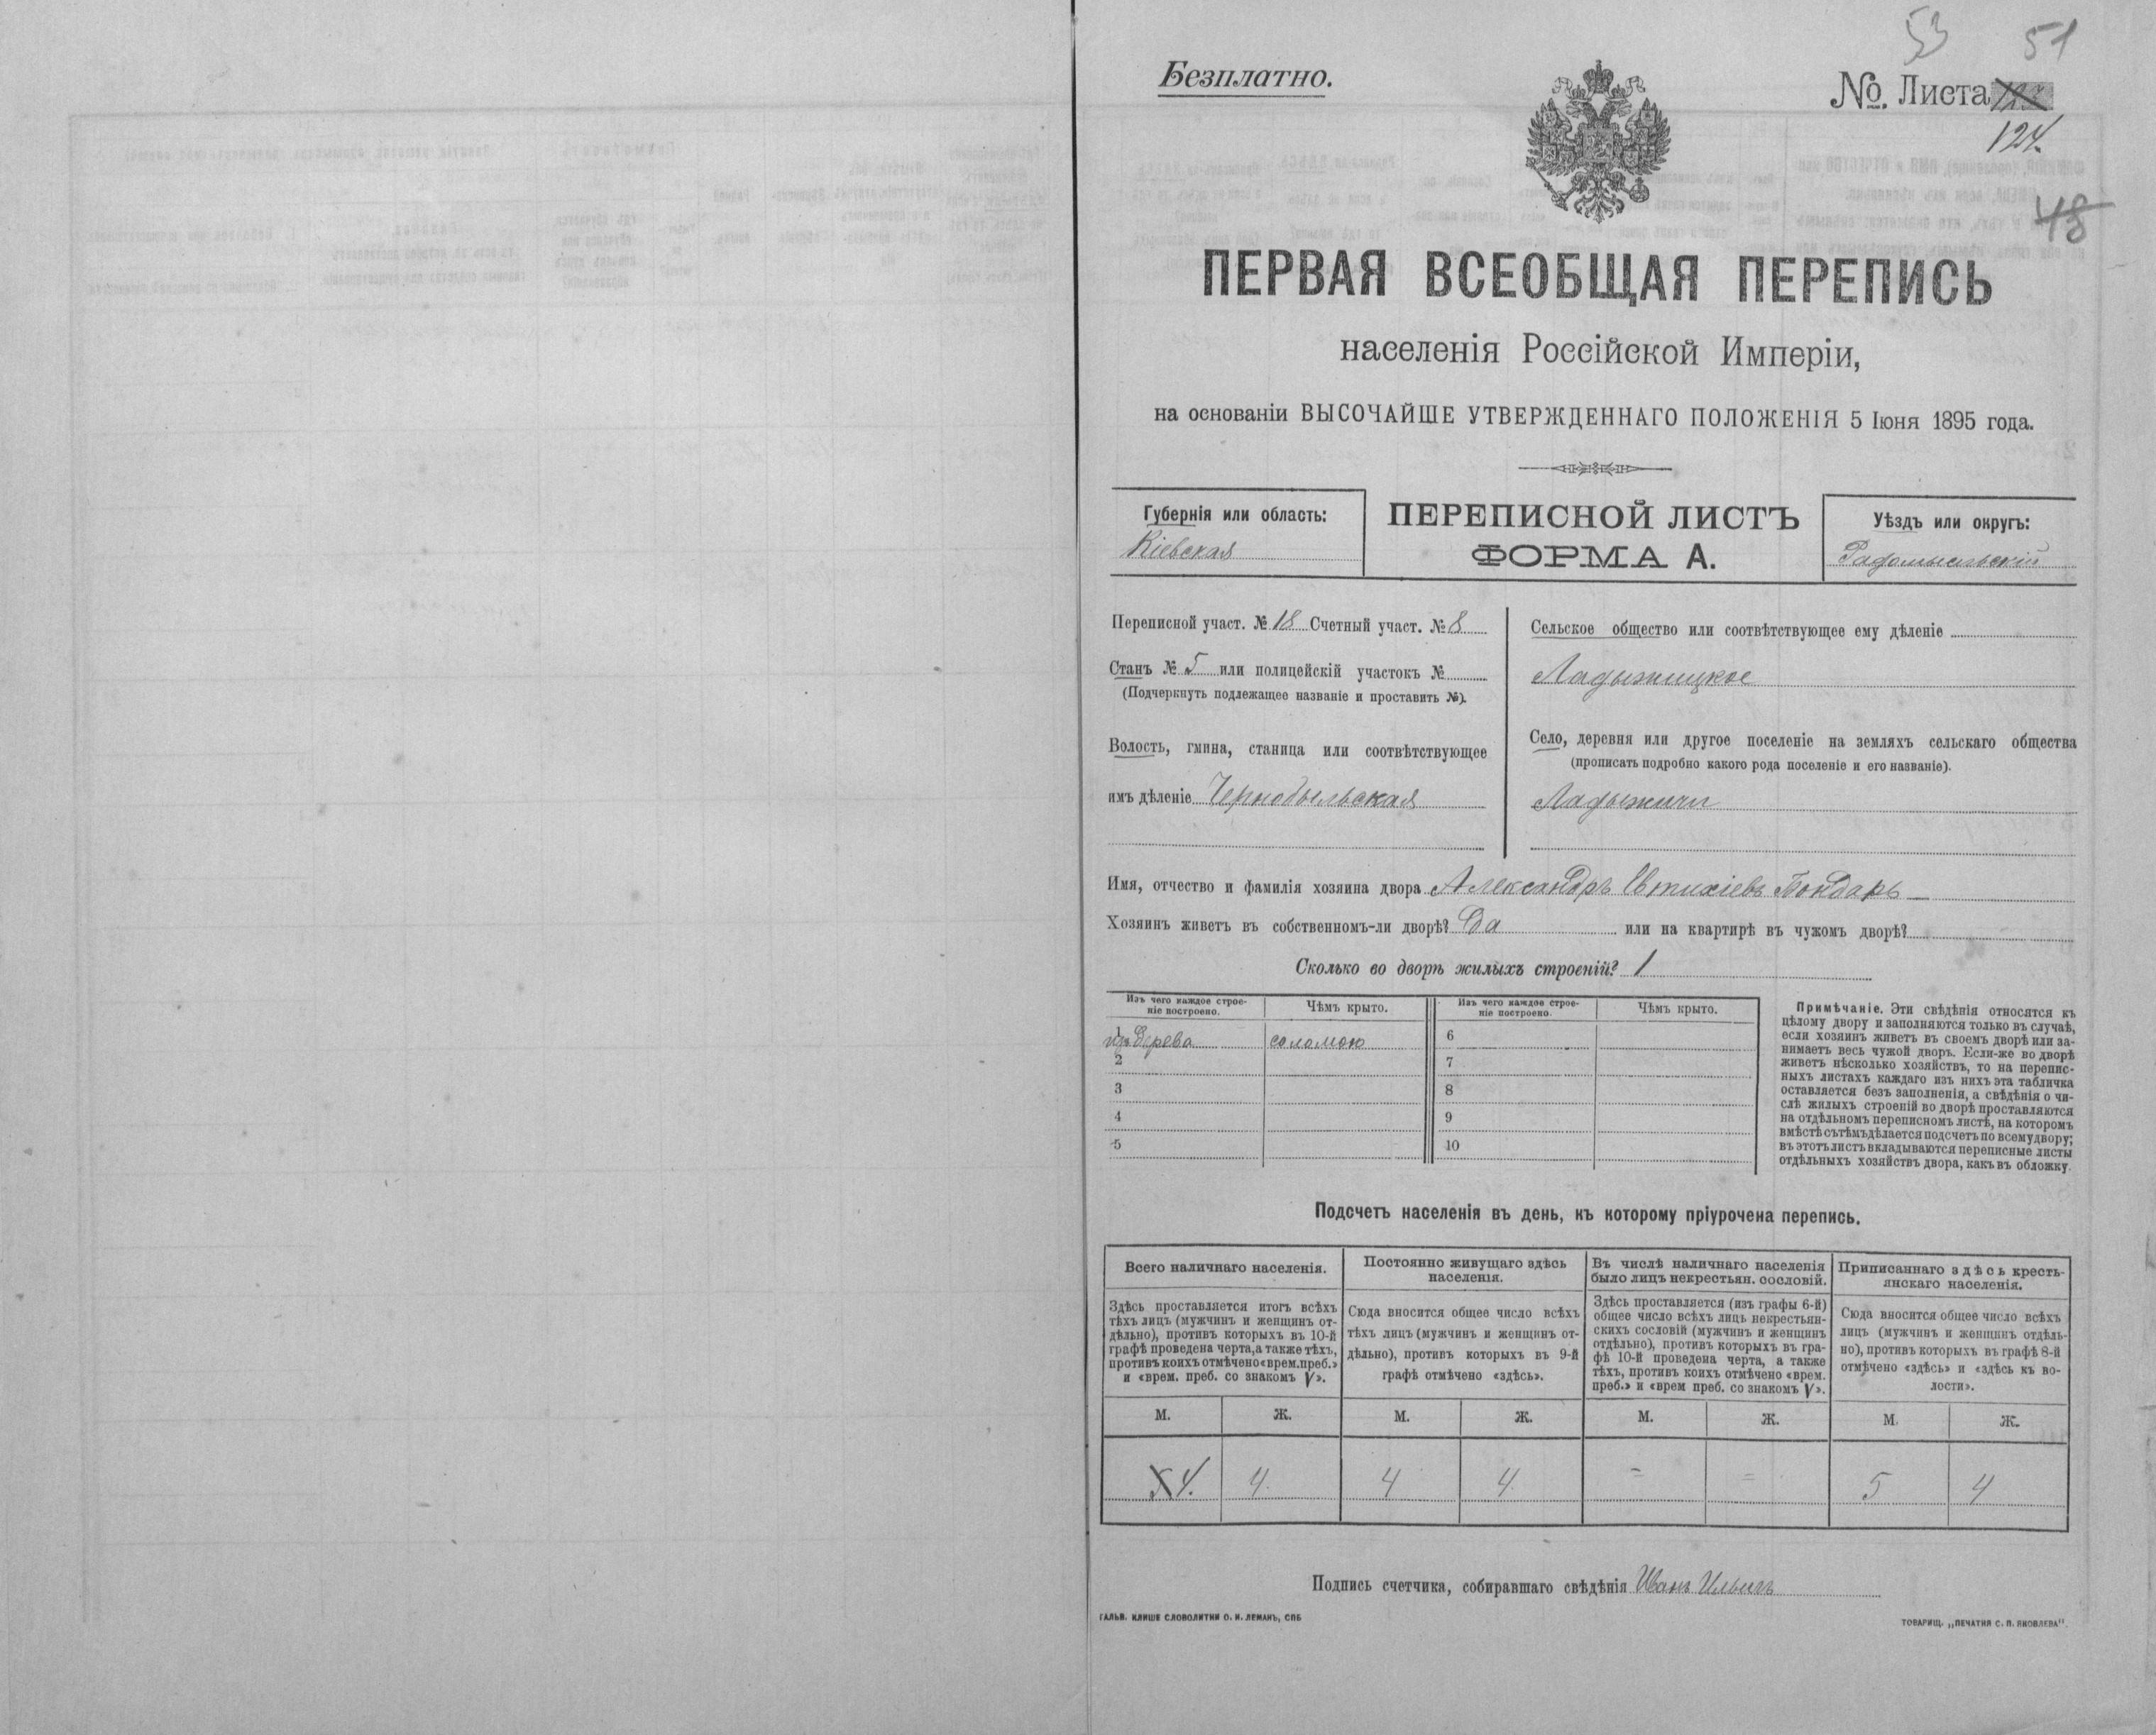 53 51
Безплатно.
№. Листа 123
124.
48
ПЕРВАЯ ВСЕОБЩАЯ ПЕРЕПИСЬ
населенія Россійской Имперіи,
на основаніи ВЫСОЧАЙШЕ УТВЕРЖДЕННАГО ПОЛОЖЕНІЯ 5 Іюня 1895 года.
Губернія или область:
Кіевская
ПЕРЕПИСНОЙ ЛИСТЪ
ФОРМА А.
Уѣздъ или округъ:
Радомысльскій
Переписной участ. № 18 Счетный участ. № 8
Станъ № 5 или полицейскій участокъ №
(Подчеркнуть подлежащее названіе и проставить №).
Волость, гмина, станица или соотвѣтствующее
имъ дѣленіе Чернобыльская
Сельское общество или соотвѣтствующее ему дѣленіе
Ладыжицкое
Село, деревня или другое поселеніе на земляхъ сельскаго общества
(прописать подробно какого рода поселеніе и его названіе).
Ладыжичи
Имя, отчество и фамилія хозяина двора Александръ Евтихіевъ Бондарь
Хозяинъ живетъ въ собственномъ-ли дворѣ? Да или на квартирѣ въ чужомъ дворѣ?
Сколько во дворѣ жилыхъ строеній? 1
Изъ чего каждое строе-
ніе построено.
Чѣмъ крыто.
Изъ чего каждое строе-
ніе построено.
Чѣмъ крыто.
1 изъ дерева соломою 6
2 7
3 8
4 9
5 10
Примѣчаніе. Эти свѣдѣнія относятся къ
цѣлому двору и заполняются только въ случаѣ,
если хозяинъ живетъ въ своемъ дворѣ или за-
нимаетъ весь чужой дворъ. Если-же во дворѣ
живетъ нѣсколько хозяйствъ, то на перепис-
ныхъ листахъ каждаго изъ нихъ эта табличка
оставляется безъ заполненія, а свѣдѣнія о чи-
слѣ жилыхъ строеній во дворѣ проставляются
на отдѣльномъ переписномъ листѣ, на которомъ
вмѣстѣ съ тѣмъ дѣлается подсчетъ по всему двору;
въ этотъ листъ вкладываются переписные листы
отдѣльныхъ хозяйствъ двора, какъ въ обложку.
Подсчетъ населенія въ день, къ которому пріурочена перепись.
Всего наличнаго населенія.
Здѣсь проставляется итогъ всѣхъ
тѣхъ лицъ (мужчинъ и женщинъ от-
дѣльно), противъ которыхъ въ 10-й
графѣ проведена черта, а также тѣхъ,
противъ коихъ отмѣчено «врем. преб.»
и «врем. преб. со знакомъ V».
Постоянно живущаго здѣсь
населенія.
Сюда вносится общее число всѣхъ
тѣхъ лицъ (мужчинъ и женщинъ от-
дѣльно), противъ которыхъ въ 9-й
графѣ отмѣчено «здѣсь».
Въ числѣ наличнаго населенія
было лицъ некрестьян. сословій.
Здѣсь проставляется (изъ графы 6-й)
общее число всѣхъ лицъ некрестьян-
скихъ сословій (мужчинъ и женщинъ
отдѣльно), противъ которыхъ въ гра-
фѣ 10-й проведена черта, а также
тѣхъ, противъ коихъ отмѣчено «врем.
преб.» и «врем преб. со знакомъ V».
Приписаннаго здѣсь кресть-
янскаго населенія.
Сюда вносится общее число всѣхъ
лицъ (мужчинъ и женщинъ отдѣль-
но), противъ которыхъ въ графѣ 8-й
отмѣчено «здѣсь» и «здѣсь къ во-
лости».
М. Ж. М. Ж. М. Ж. М. Ж.
4. 4. 4 4 = = 5 4
Подпись счетчика, собиравшаго свѣдѣнія Иванъ Ильичъ
ГАЛЬВ. КЛИШЕ СЛОВОЛИТНИ О. И. ЛЕМАНЪ, СПБ
ТОВАРИЩ. „ПЕЧАТНЯ С. П. ЯКОВЛЕВА".